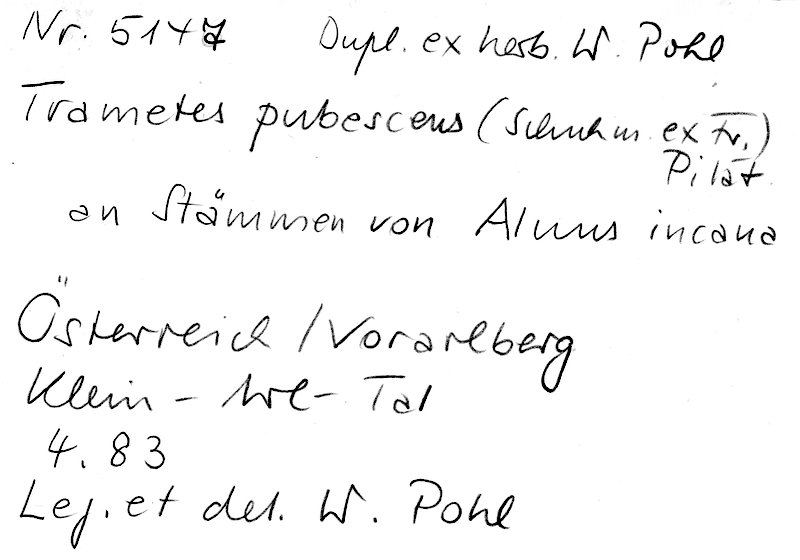 Nr. 5147 Dupl. ex herb. W. Pohl
Trametes pubescens (Schuhm. ex Fr.)
Pilát
an Stämmen von Alnus incana
Österreich / Vorarlberg
Klein - - Tal
4. 83
Leg. et det. W. Pohl